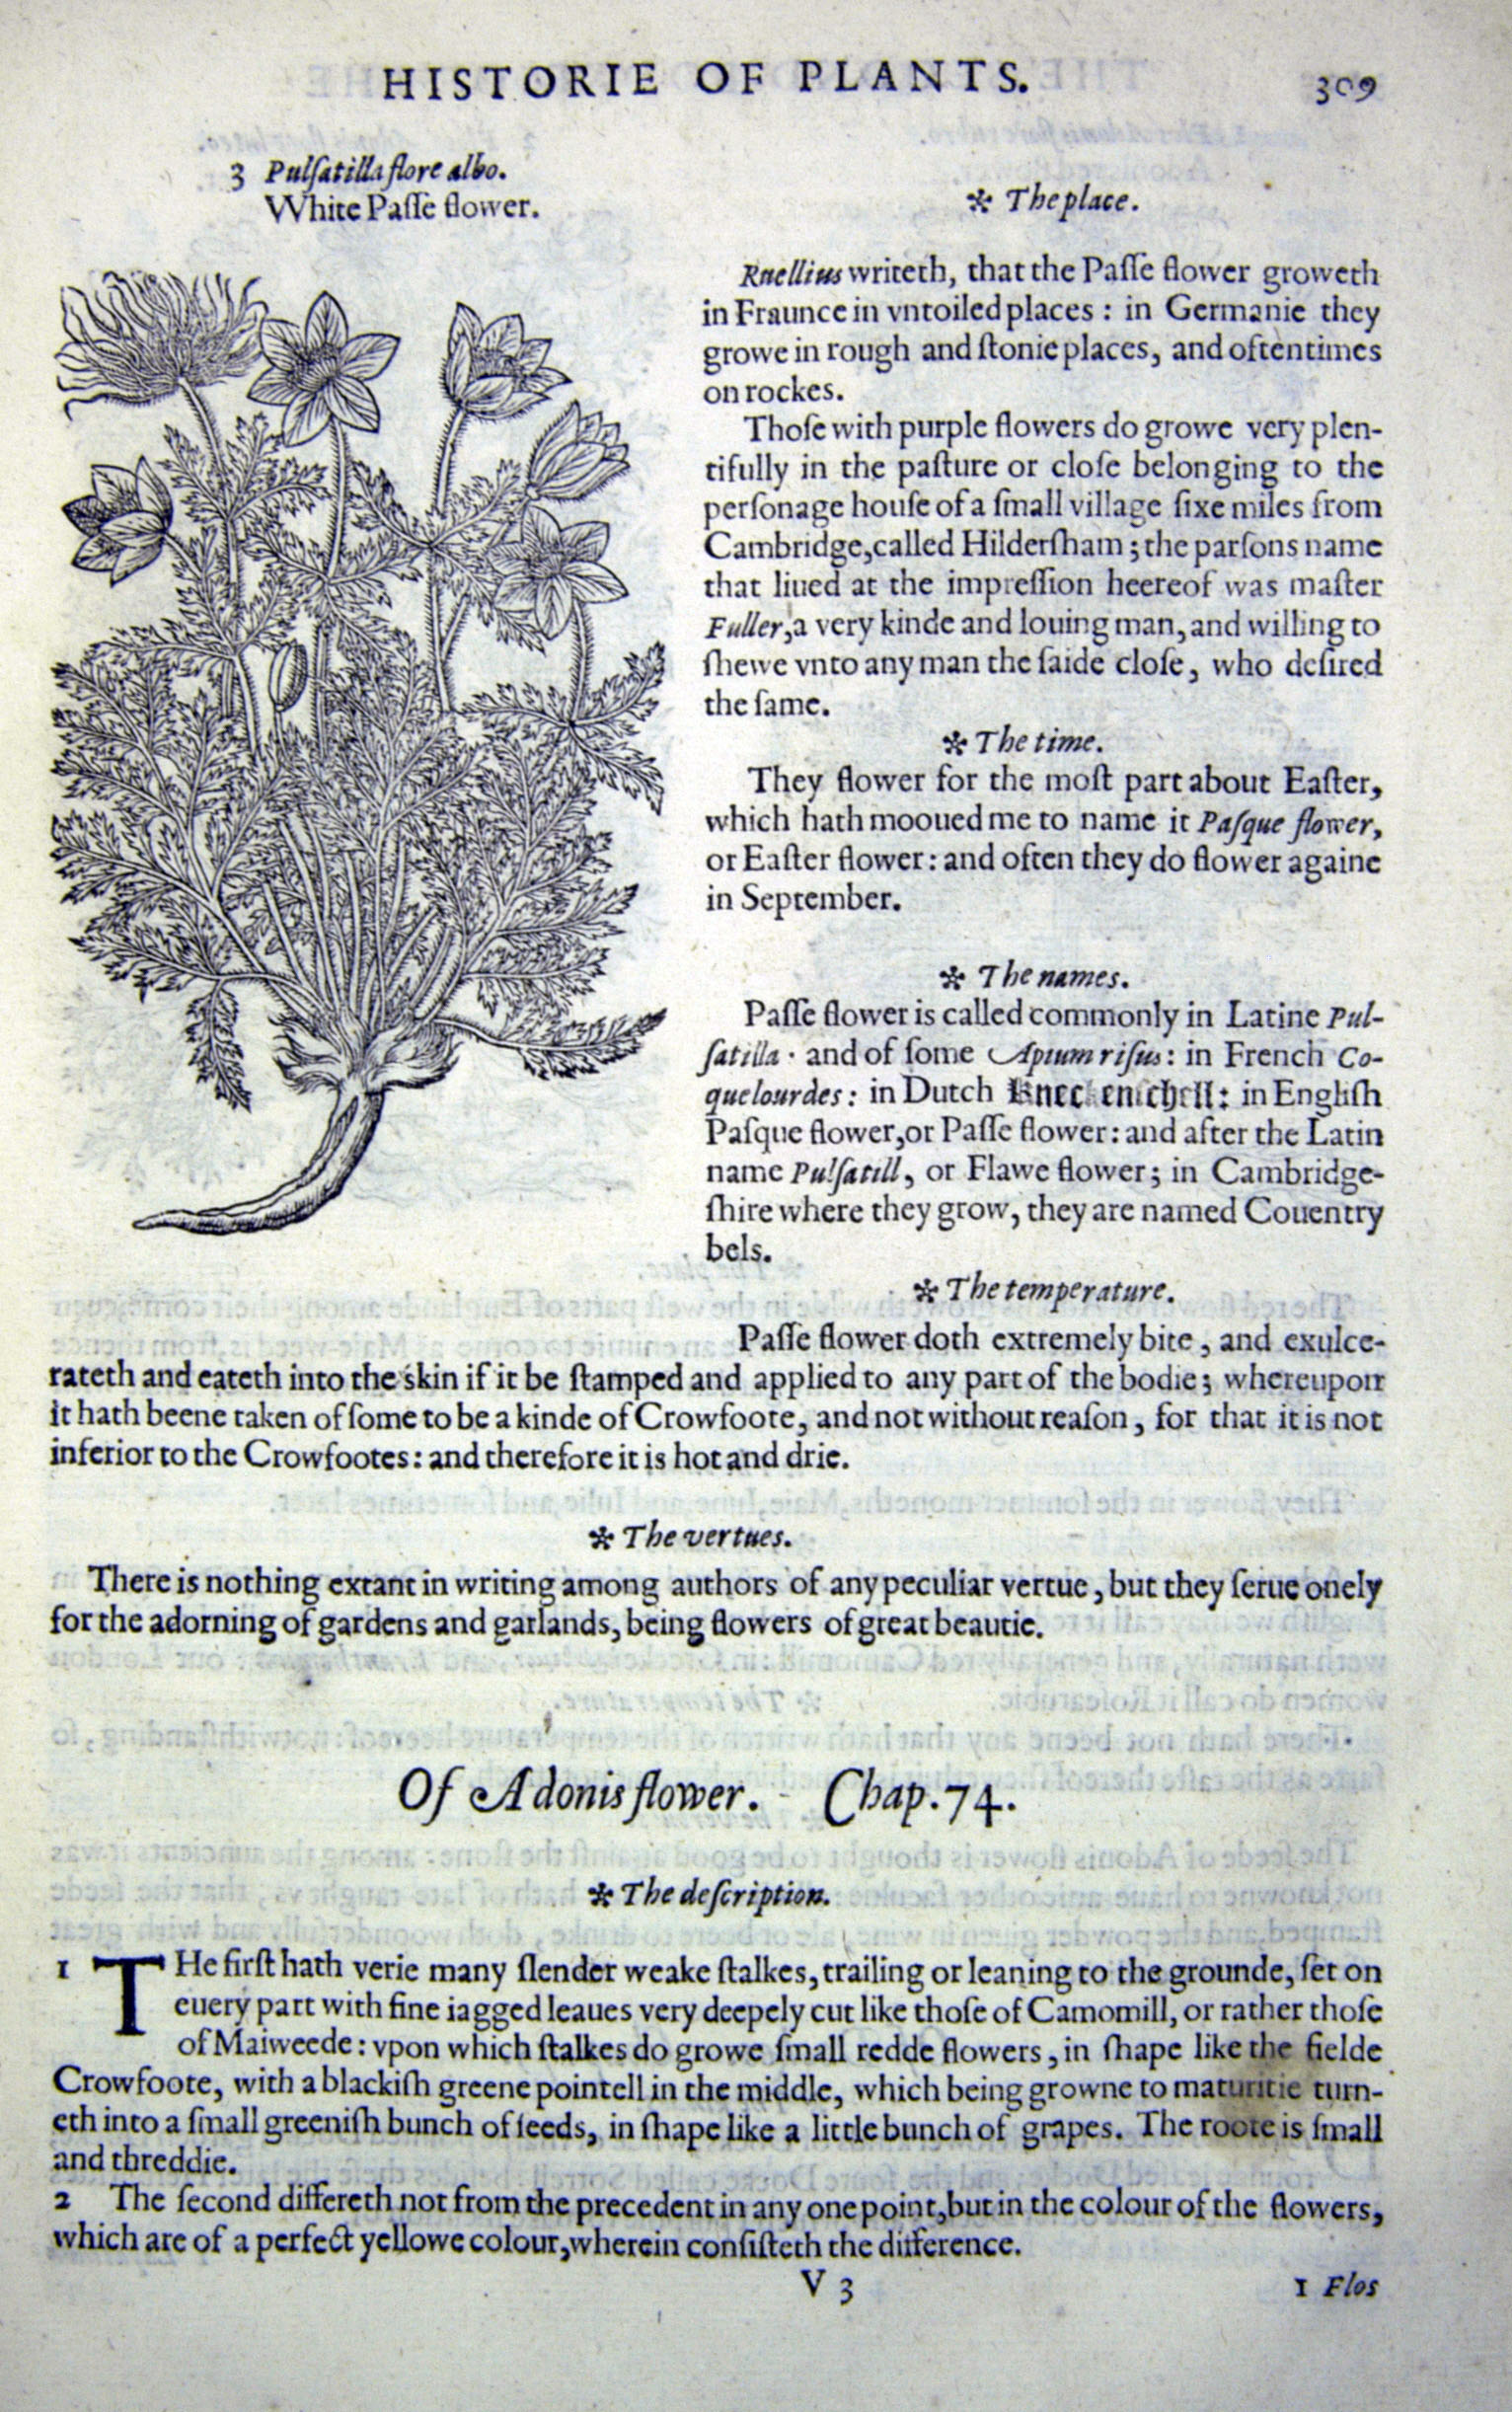 HISTORIE OF PLANTS. 309
3 Pulſatilla flore albo.
White Paſſe flower.
✻ The place.
Ruellius writeth, that the Paſſe flower groweth
in Fraunce in vntoiled places : in Germanie they
growe in rough and ſtonie places, and oftentimes
on rockes.
Thoſe with purple flowers do growe very plen-
tifully in the paſture or cloſe belonging to the
perſonage houſe of a ſmall village ſixe miles from
Cambridge, called Hilderſham ; the parſons name
that liued at the impreſſion heereof was maſter
Fuller, a very kinde and louing man, and willing to
ſhewe vnto any man the ſaide cloſe, who deſired
the ſame.
✻ The time.
They flower for the moſt part about Eaſter,
which hath mooued me to name it Paſque flower,
or Eaſter flower : and often they do flower againe
in September.
✻ The names.
Paſſe flower is called commonly in Latine Pul-
ſatilla · and of ſome Apium riſus : in French Co-
quelourdes : in Dutch : in Engliſh
Paſque flower, or Paſſe flower : and after the Latin
name Pulſatill, or Flawe flower ; in Cambridge-
ſhire where they grow, they are named Couentry
bels.
✻ The temperature.
Paſſe flower doth extremely bite , and exulce-
rateth and eateth into the skin if it be ſtamped and applied to any part of the bodie ; whereupon
it hath beene taken of ſome to be a kinde of Crowfoote, and not without reaſon , for that it is not
inferior to the Crowfootes : and therefore it is hot and drie.
✻ The vertues.
There is nothing extant in writing among authors of any peculiar vertue , but they ſerue onely
for the adorning of gardens and garlands, being flowers of great beautie.
Of Adonis flower. Chap. 74.
✻ The deſcription.
1 THe firſt hath verie many ſlender weake ſtalkes, trailing or leaning to the grounde, ſet on
euery part with fine iagged leaues very deepely cut like thoſe of Camomill, or rather thoſe
of Maiweede : vpon which ſtalkes do growe ſmall redde flowers , in ſhape like the fielde
Crowfoote, with a blackiſh greene pointell in the middle, which being growne to maturitie turn-
eth into a ſmall greeniſh bunch of ſeeds, in ſhape like a little bunch of grapes. The roote is ſmall
and threddie.
2 The ſecond differeth not from the precedent in any one point, but in the colour of the flowers,
which are of a perfect yellowe colour, wherein conſiſteth the difference.
V 3 1 Flos